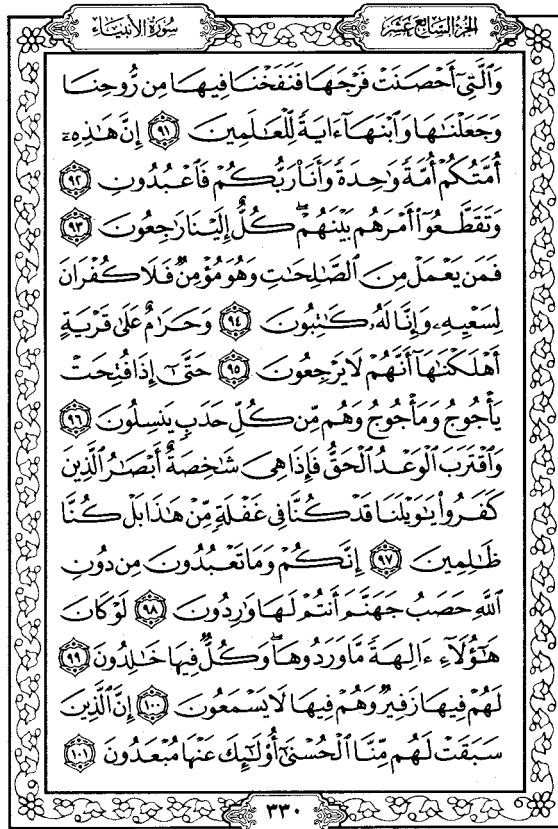 سُورَةُ الأَنبِيَاء
الجُزْءُ السَّابِعَ عَشَرَ
وَٱلَّتِيٓ أَحْصَنَتْ فَرْجَهَا فَنَفَخْنَا فِيهَا مِن رُّوحِنَا
وَجَعَلْنَٰهَا وَٱبْنَهَآ ءَايَةً لِّلْعَٰلَمِينَ ٩١ إِنَّ هَٰذِهِۦٓ
أُمَّتُكُمْ أُمَّةً وَٰحِدَةً وَأَنَا۠ رَبُّكُمْ فَٱعْبُدُونِ ٩٢
وَتَقَطَّعُوٓا۟ أَمْرَهُم بَيْنَهُمْ ۖ كُلٌّ إِلَيْنَا رَٰجِعُونَ ٩٣
فَمَن يَعْمَلْ مِنَ ٱلصَّٰلِحَٰتِ وَهُوَ مُؤْمِنٌ فَلَا كُفْرَانَ
لِسَعْيِهِۦ وَإِنَّا لَهُۥ كَٰتِبُونَ ٩٤ وَحَرَٰمٌ عَلَىٰ قَرْيَةٍ
أَهْلَكْنَٰهَآ أَنَّهُمْ لَا يَرْجِعُونَ ٩٥ حَتَّىٰٓ إِذَا فُتِحَتْ
يَأْجُوجُ وَمَأْجُوجُ وَهُم مِّن كُلِّ حَدَبٍ يَنسِلُونَ ٩٦
وَٱقْتَرَبَ ٱلْوَعْدُ ٱلْحَقُّ فَإِذَا هِىَ شَٰخِصَةٌ أَبْصَٰرُ ٱلَّذِينَ
كَفَرُوا۟ يَٰوَيْلَنَا قَدْ كُنَّا فِى غَفْلَةٍ مِّنْ هَٰذَا بَلْ كُنَّا
ظَٰلِمِينَ ٩٧ إِنَّكُمْ وَمَا تَعْبُدُونَ مِن دُونِ
ٱللَّهِ حَصَبُ جَهَنَّمَ أَنتُمْ لَهَا وَٰرِدُونَ ٩٨ لَوْ كَانَ
هَٰٓؤُلَآءِ ءَالِهَةً مَّا وَرَدُوهَا ۖ وَكُلٌّ فِيهَا خَٰلِدُونَ ٩٩
لَهُمْ فِيهَا زَفِيرٌ وَهُمْ فِيهَا لَا يَسْمَعُونَ ١٠٠ إِنَّ ٱلَّذِينَ
سَبَقَتْ لَهُم مِّنَّا ٱلْحُسْنَىٰٓ أُو۟لَٰٓئِكَ عَنْهَا مُبْعَدُونَ ١٠١
٣٣٠